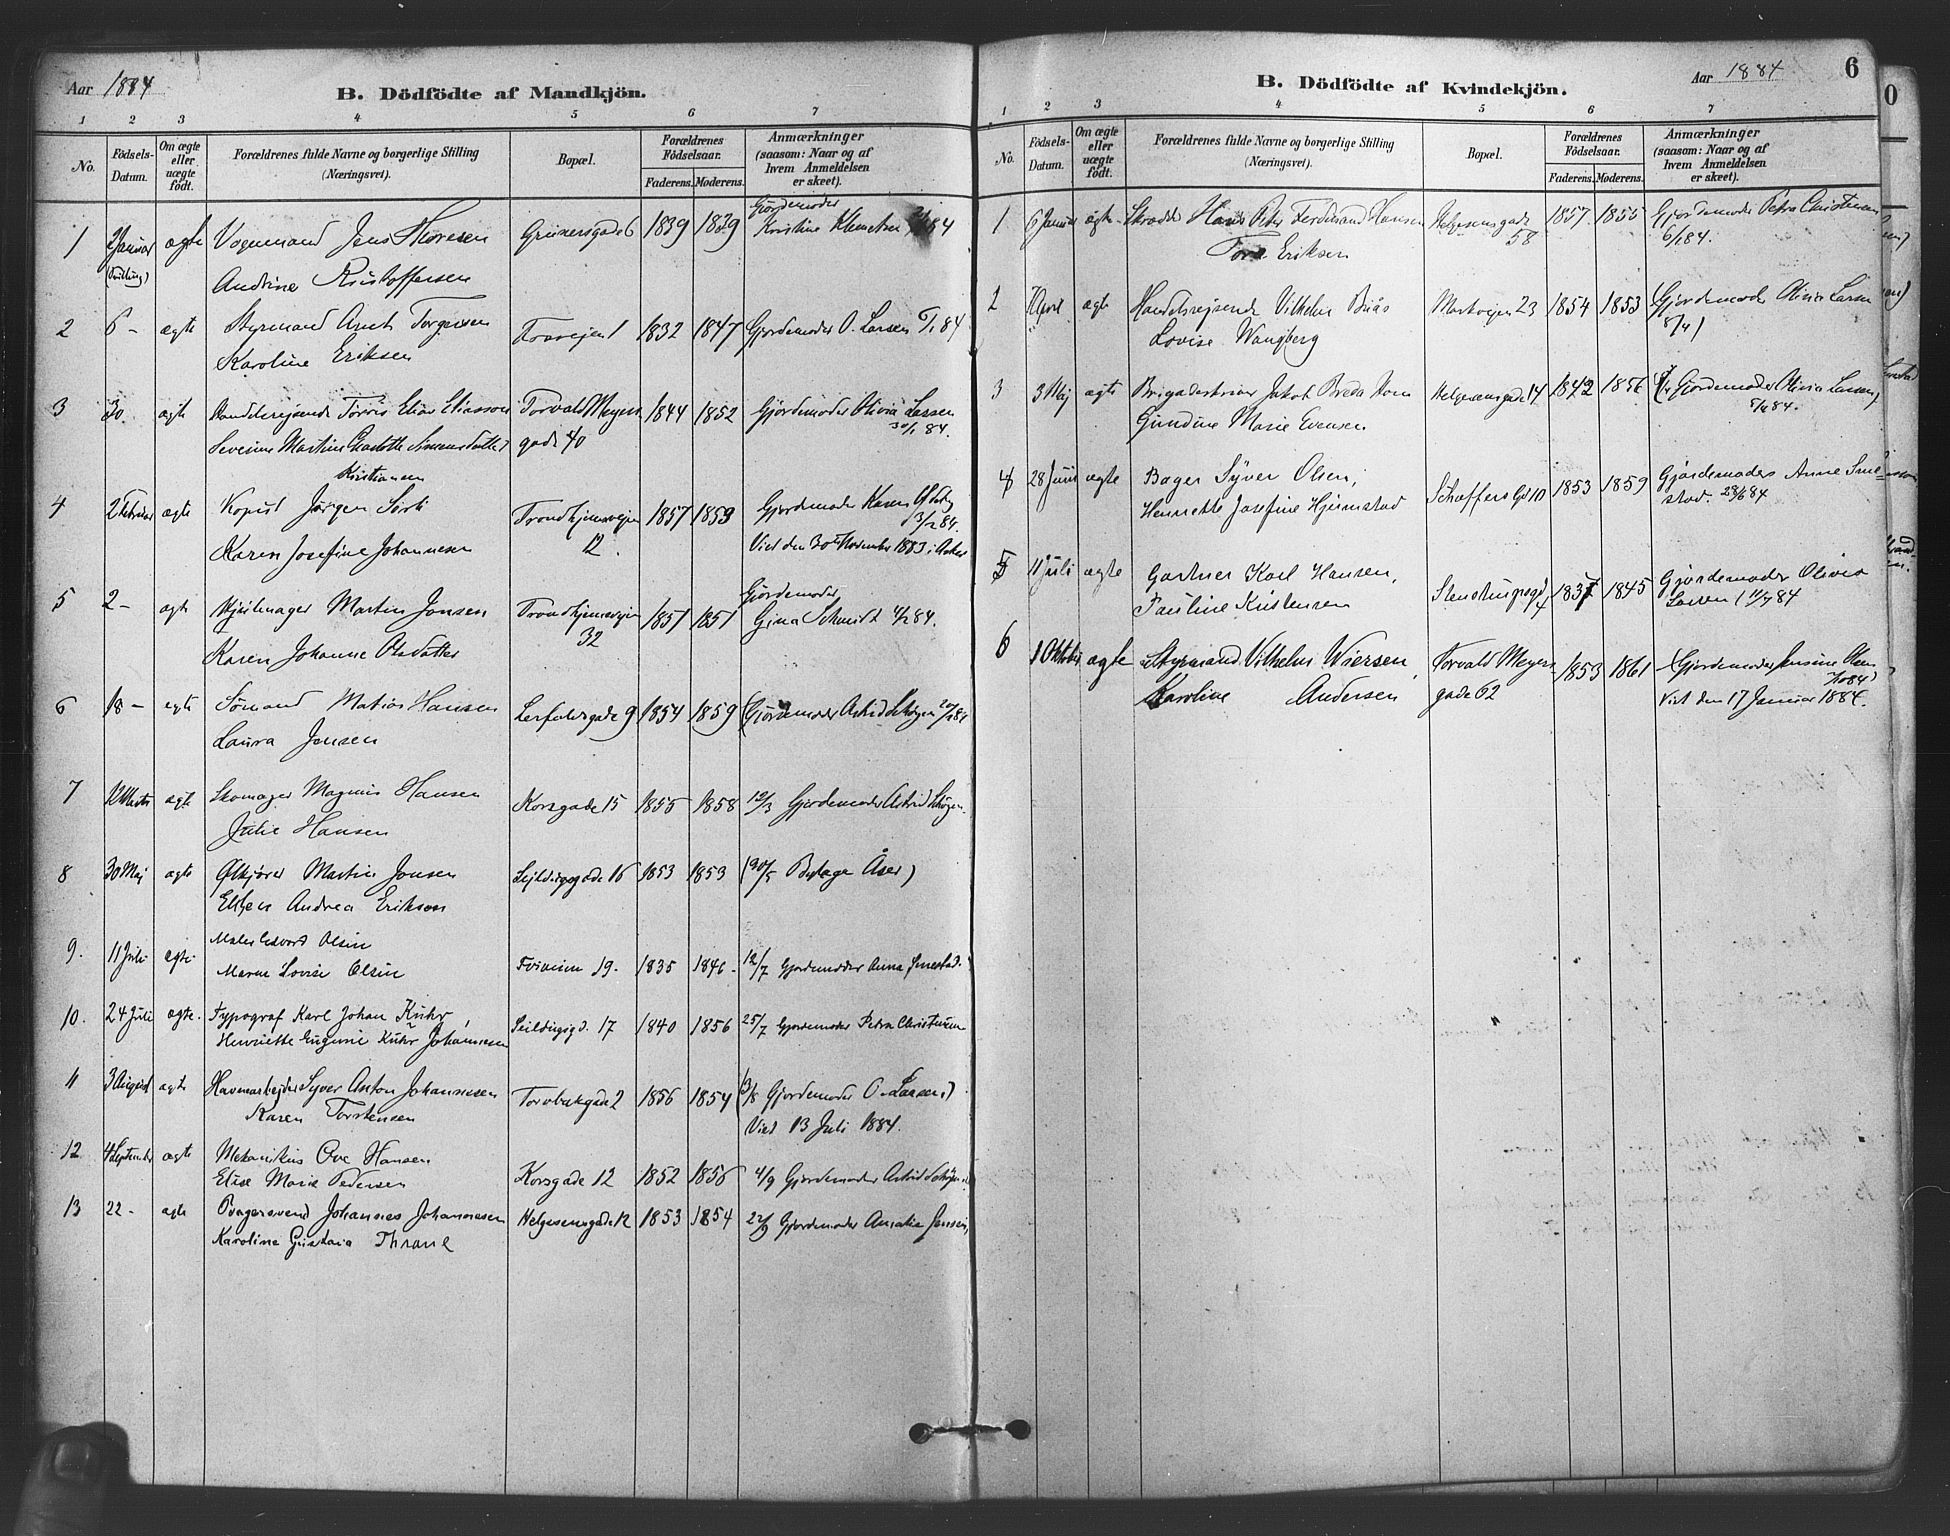 Aar 1884
B. Dödfödte af Mandkjön.
1 2 3 4 5 6 7
No. Födsels-Datum. Om ægte eller uægte födt. Forældrenes fulde Navne og borgerlige Stilling (Næringsvei). Bopæl. Forældrenes Födselsaar. Faderens. Moderens. Anmærkninger (saasom: Naar og af hvem Anmeldelsen er skeet).
1 2 Januar ægte Vognmand Jens Thoresen Grünersgade 6 1839 1839 Gjordemoder Kristine
(Tvilling) Andrine Kristoffersen
2 6 - ægte Styrmand Torgersen 1 1832 1847 Gjordemoder O. Larsen 84
Karoline Eriksen
3 30 ægte Handelsrejsende Elias Eliassen Torvald Meyers 1844 1852 Gjordemoder Olivia Larsen
Martine Charlotte Simensdatter gade 40 30/1 84.
Kristiansen
4 2 Februar ægte Kopist Jørgen Trondhjemsvejen 1857 1859 Gjordemoder Karen
12. 3/2 84.
Karen Josefine Johannesen Viet den 30te November 1883 i Aker
5 2 - ægte Hjulmager Martin Jensen Trondhjemsvejen 1851 1851 Gjordemoder
32 Gina Schmidt 4/2 84.
Karen Johanne Olsdatter
6 18 - ægte Sömand Matias Hansen 9 1854 1859 (Gjordemoder Astrid
Laura Jensen
7 12 Marts ægte Skomager Magnus Hansen Korsgade 15 1855 1858 12/3 Gjordemoder Astrid
Julie Hansen
8 30 Maj ægte Ølkjører Martin Jensen Seildugsgade 16 1853 1853 (30/5 Åser)
Ellen Andrea Eriksen
9. 11 Juli ægte Maler Edvard Olsen 19. 1835 1846 12/7 Gjordemoder Anna Smestad.
Lovise Olsen
10. 24 Juli ægte. Typograf Karl Johan Kuhr, Seildugsgd. 17 1840 1856 25/7 Gjordemoder Petra Christensen
Henriette Eugenie Kuhr Johannesen
11 3 August ægte Havnearbejder Syver Anton Johannesen Torvbakgade 2 1856 1854 (3/8 Gjordemoder O. Larsen.)
Karen Torstensen Viet 13 Juli 1884.
12 4 September ægte Mekanikus Ove Hansen Korsgade 12 1852 1856 4/9 Gjordemoder Astrid
Elise Marie Pedersen
13 22 - ægte Bagersvend Johannes Johannesen Helgesensgade 12 1853 1854 22/9 Gjordemoder Amalie Jensen,
Karoline Gustava Thrane
Aar 1884 6
B. Dödfödte af Kvindekjön.
1 2 3 4 5 6 7
No. Födsels-Datum. Om ægte eller uægte födt. Forældrenes fulde Navne og borgerlige Stilling (Næringsvei). Bopæl. Forældrenes Födselsaar. Faderens. Moderens. Anmærkninger (saasom: Naar og af hvem Anmeldelsen er skeet).
1 6 Januar ægte Skrædder Hans Peter Ferdinand Hansen Helgesensgade 1857 1855 Gjordemoder Petra Christensen
Tora Eriksen 58 6/1 84.
2 April ægte Handelsrejsende Vilhelm Markvejen 23 1854 1853 (Gjordemoder Olivia Larsen
Lovise Wangberg 8/4)
3 3 Maj ægte Jakob Breda Helgesensgade 14 1842 1856 (Gjordemoder Olivia Larsen,
Gundine Marie Evensen 84.
4 28 Juni ægte Bager Syver Olsen, Schaffers Gd 10 1853 1859 Gjordemoder Anne Sme-
Henriette Josefine Hjemstad stad 28/6 84
5 11 Juli ægte Gartner Karl Hansen, Stenstrupsgd 1837 1845 Gjordemoder Olivia
Pauline Kristensen 4 Larsen (11/7 84
6 1 Oktober ægte Styrmand Vilhelm Wiersen, Torvald Meyers 1853 1861 (Gjordemoder Jensine Olsen
Karoline Andersen gade 62 1/10 84)
Viet den 17 Januar 1884.